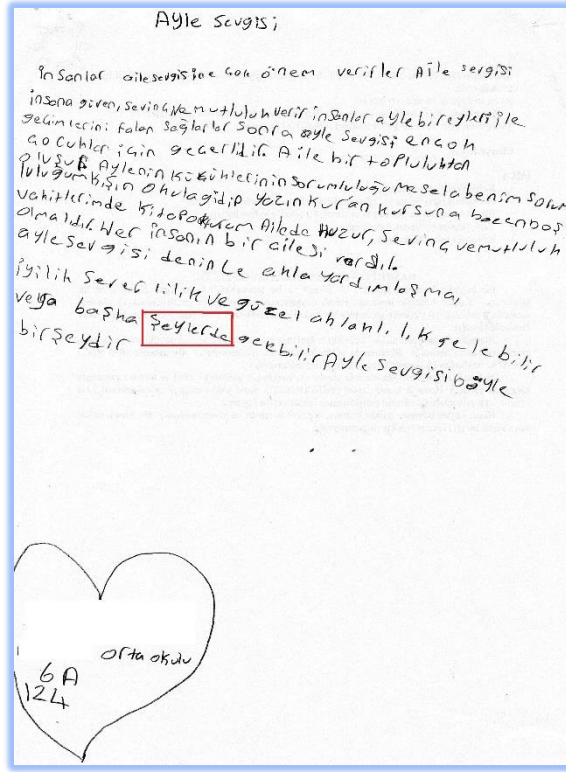 Ayle Sevgisi
insanlar aile sevgisine çok önem verirler Aile sevgisi
insana güven, sevinç ve mutluluk verir insanlar ayle bireyleri ile
geçimlerini falan sağlarlar sonra ayle sevgisi en çok
çocuklar için geçerlidir. Aile bir topluluktan
oluşur Aylenin küçüklerinin sorumluluğu mesela benim sorum
luluğum kışın okula gidip yazın kur'an kursuna bazen boş
vakitlerimde kitap okuram Ailede Huzur, Sevinç ve mutluluk
olmalıdır. Her insanın bir ailesi vardır.
ayle sevgisi denince akla yardımlaşma,
iyilik severlilik ve güzel ahlaklılık gelebilir
veya başka şeylerde gelebilir Ayle sevgisi böyle
bir şeydir
orta okulu
6 A
124